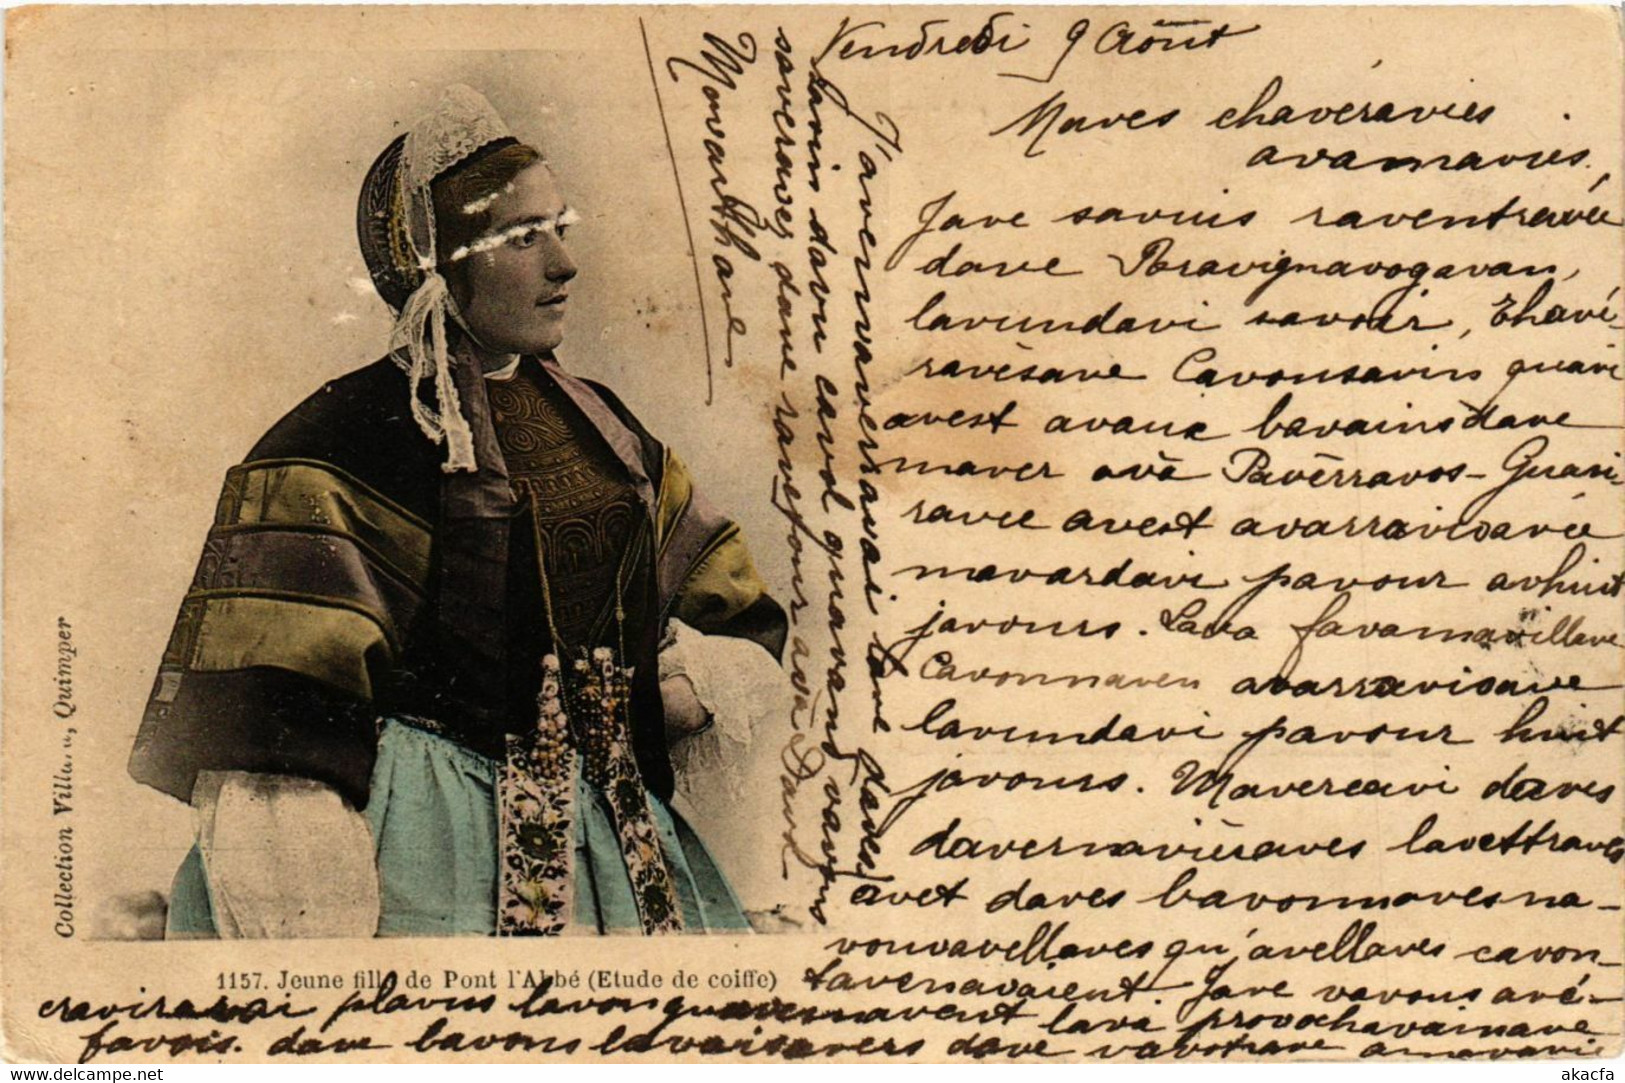 Vendredi 9 Août
Maves chavéravies
avamavies,
Jave savuis raventravée
dave Pravignavogavan,
lavundavi savoir, Chavé-
ravèsave Cavousavin quavi
avest avaux bavainsdave
maver avà Pavérravos-Guavi-
ravec avest avarravivavée
mavardavi pavour avhuit
javours. Lava favamavillave
Cavonnaven avarravivave
lavundavi pavour huit
javours. Mavercavi daves
davernavièraves lavettraves
avet daves bavonnavesna-
vouvavellaves qu'avellaves cavon-
tavenavaient. Jave vavous avé-
craviravai plavus lavonguavemavent lava provochavainave
favois. dave bavons bavaisavers dave vavotrave amavie
J'avenvaverravai lave daves
savin davu cavol quavand vavous
saveraves dave ravetour avà Pav
Mavarthave
Collection Villard, Quimper
1157. Jeune fille de Pont l'Abbé (Etude de coiffe)
akacfa